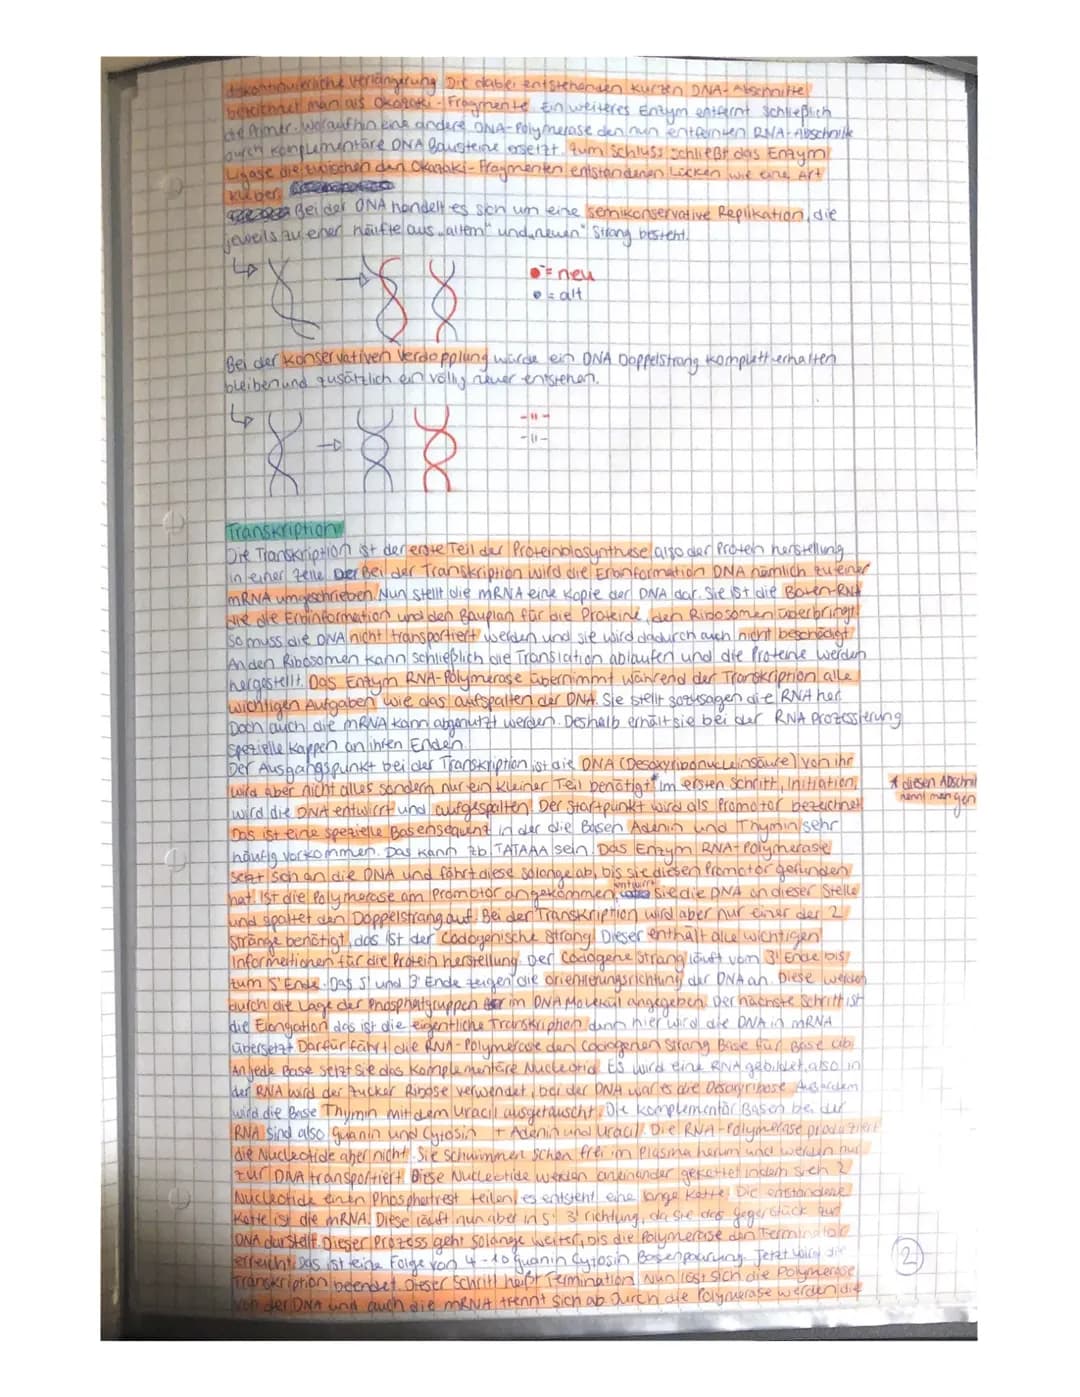 diskontinuierliche Verlängerung. Die dabei entstehenden kurzen DNA-Abschnitte
bezeichnet man als Okazaki-Fragmente. Ein weiteres Enzym entfernt schließlich
die Primer. Woraufhin eine andere DNA-Polymerase den nun entfernten RNA-Abschnitt
durch komplementäre DNA Bausteine ersetzt. Zum Schluss schließt das Enzym
Ligase die zwischen den Okazaki-Fragmenten entstandenen Lücken wie eine Art
Kleber.
Bei der DNA handelt es sich um eine semikonservative Replikation, die
jeweils zu einer hälfte aus „altem" und „neuen" Strang besteht.
= neu
= alt
Bei der konservativen Verdopplung würde ein DNA Doppelstrang komplett erhalten
bleiben und zusätzlich ein völlig neuer entstehen.
-"-
-"-
Transkription
Die Transkription ist der erste Teil der Proteinbiosynthese also der Protein herstellung
in einer Zelle. Bei der Transkription wird die Erbinformation DNA nämlich zu einer
mRNA umgeschrieben. Nun stellt die mRNA eine Kopie der DNA dar. Sie ist die Boten-RNA
die die Erbinformation und den Bauplan für die Proteine, den Ribosomen überbringt.
So muss die DNA nicht transportiert werden und sie wird dadurch auch nicht beschädigt.
An den Ribosomen kann schließlich die Translation ablaufen und die Proteine werden
hergestellt. Das Enzym RNA-Polymerase übernimmt während der Transkription alle
wichtigen Aufgaben wie das aufspalten der DNA. Sie stellt sozusagen die RNA her.
Doch auch die mRNA kann abgenutzt werden. Deshalb erhält sie bei der RNA Prozessierung
spezielle Kappen an ihren Enden.
Der Ausgangspunkt bei der Transkription ist die DNA (Desoxyribonucleinsäure) von ihr
wird aber nicht alles sondern nur ein kleiner Teil benötigt* im ersten Schritt, Initiation,
* diesen Abschni
nennt man gen
wird die DNA entwirrt und aufgespalten. Der Startpunkt wird als Promotor bezeichnet
Das ist eine spezielle Basensequenz in der die Basen Adenin und Thymin sehr
häufig vorkommen. Das kann zb TATAAA sein. Das Enzym RNA-Polymerase
setzt sich an die DNA und fährt diese solange ab, bis sie diesen Promotor gefunden
hat. Ist die Polymerase am Promotor angekommen, entwirrt sie die DNA an dieser Stelle
und spaltet den Doppelstrang auf. Bei der Transkription wird aber nur einer der 2
Stränge benötigt, das ist der Codogenische Strang. Dieser enthält alle wichtigen
Informationen für die Protein herstellung. Der Codogene Strang läuft vom 3' Ende bis
zum 5' Ende. Das 5' und 3' Ende zeigen die orientierungsrichtung der DNA an. Diese werden
durch die Lage der Phosphatgruppen im DNA Molekül angegeben. Der nächste Schritt ist
die Elongation das ist die eigentliche Transkription denn hier wird die DNA in mRNA
übersetzt. Darfür fährt die RNA-Polymerase den Codogenen Strang Base für Base ab.
An jede Base setzt sie das Komplementäre Nucleotid. Es wird eine RNA gebildet, also in
der RNA wird der Zucker Ribose verwendet, bei der DNA war es die Desoxyribose. Außerdem
wird die Base Thymin mit dem Uracil ausgetauscht. Die komplementär Basen bei der
RNA sind also Guanin und Cytosin + Adenin und Uracil. Die RNA-Polymerase produziert
die Nucleotide aber nicht. Sie schwimmen schon frei im Plasma herum und werden nur
zur DNA transportiert. Diese Nucleotide werden aneinander gekettet indem sich 2
Nucleotide einen Phosphatrest teilen, es entsteht eine lange Kette. Die entstandene
Kette ist die mRNA. Diese läuft nun aber in 5' 3' richtung, da sie das gegenstück zur
DNA darstellt. Dieser Prozess geht solange weiter, bis die Polymerase den Terminator
erreicht. Das ist eine Folge von 4-10 Guanin Cytosin Basenpaarung. Jetzt wird die
Transkription beendet. Dieser Schritt heißt Termination. Nun löst sich die Polymerase
von der DNA und auch die mRNA trennt sich ab. Durch die Polymerase werden die
2